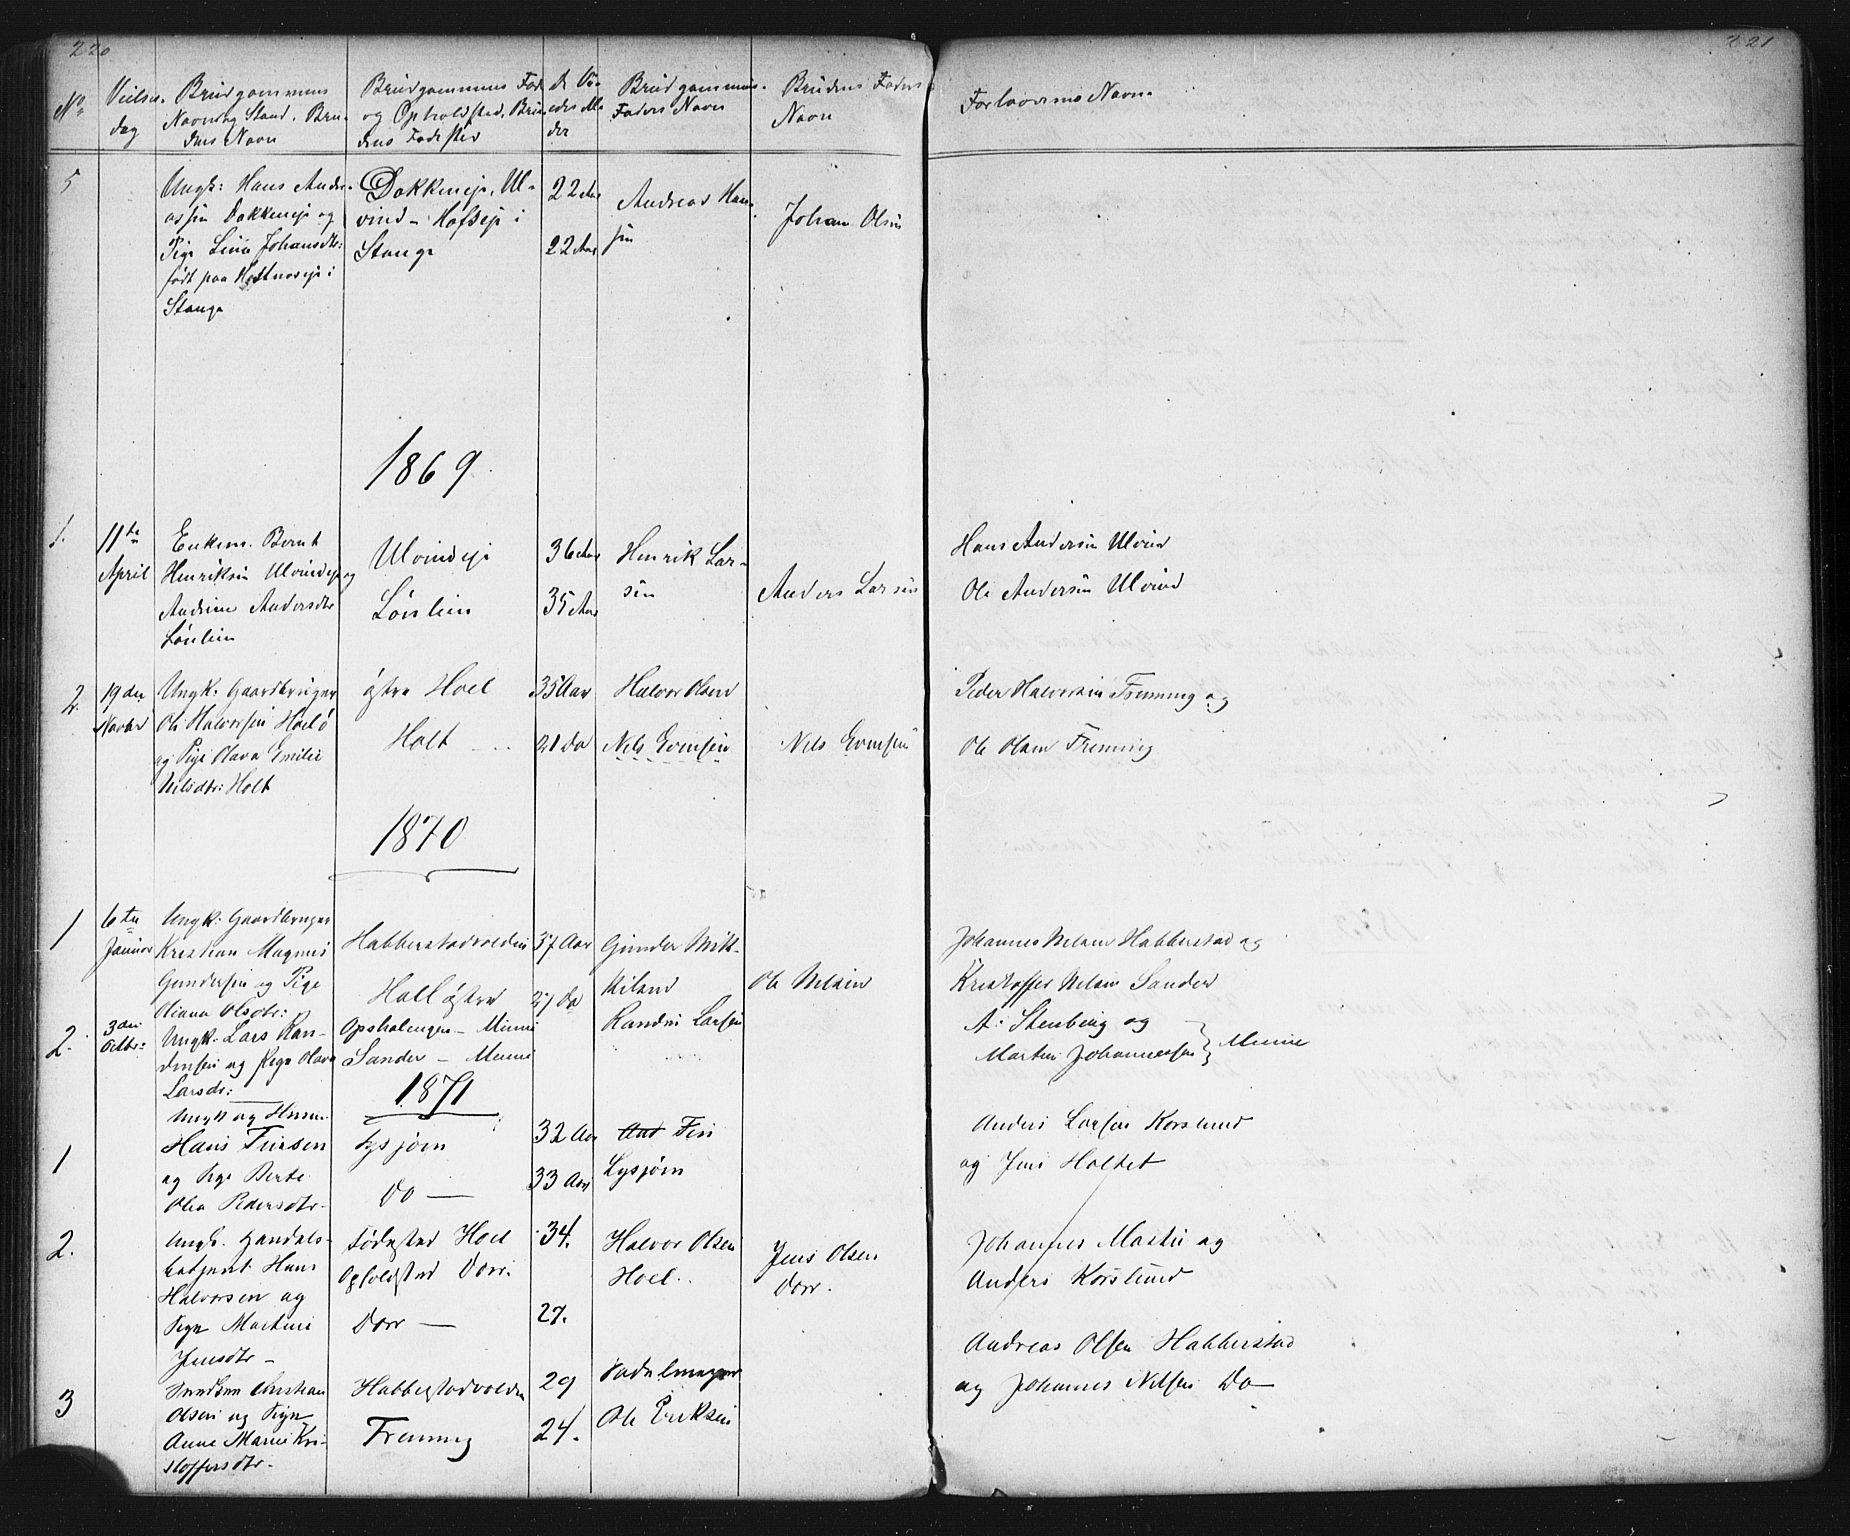 220
221
No
Vielses-
dag
Brudgommens
Navn og Stand. Bru-
dens Navn
Brudgommens Føde
og Opholdsted, Bru-
dens Fødested
Faders Navn
Brudgommens
Brudens Faders
Navn
Forlovernes Navne
5
Ungk: Hans Andre-
assen Dokkeneje og
Pige Line Johansdtr:
født paa
Stange
Dokkeneje, Ul-
vind -
Stange
22 Aar
22 Aar
Andreas Han-
sen
Johan Olsen
1869
1.
11te
April
Enkem. Bernt
Henriksen Ulvindeje og
Andrine Andersdtr
Lønlien
Ulvindeje
Lønlien
36 Aar
35 Aar
Henrik Lar-
sen
Anders Larsen
Hans Andersen Ulvind
Ole Andersen Ulvind
2.
19de
Novbr
Ungk: Gaardbruger
Ole Halvorsen Hoel ø
og Pige Olava Emilie
Nilsdtr: Holt
østre Hoel
Holt
35 Aar
21 Do
Halvor Olsen
Nils Evensen
Nils Evensen
Peder Halvorsen Fremmig og
Ole Olsen Fremmig
1870
1
6te
Januar
Ungk: Gaardbruger
Kristian Magnus
Gundersen og Pige
Diana Olsdtr:
Habberstadvolden
Hoel østre
37 Aar
27 Do
Gunder
Ole Nelsen
Johannes Nelsen Habberstad og
Kristoffer Nelsen Sander
2.
3die
Octbr:
Ungk: Lars Ran-
densen og Pige Olava
Larsdr:
Opsahlengen - Minne
Sander - Minne
Randin Larsen
A: Stenberg og
Martin Johannessen } Minne
1871
1
Ungk og
Hans Finsen
og Pige Berte
Olea Pedersdtr-
Lysjøen
Do -
32 Aar
33 Aar
Fin
Lysjøen
Anders Larsen Korslund
og Jens Holtet
2.
Ungk. Handels-
betjent Hans
Halvorsen og
Pige Martine
Jensdtr -
Fødested Hoel
Opholdsted Dorr.
Dorr -
34.
27.
Halvor Olsen
Hoel.
Jens Olsen
Dorr.
Johannes Martin og
Anders Korslund
3
Christian
Olsen og Pige
Anne Marie Kri-
stoffersdtr.
Habberstadvolden
Fremmig
29
24.
Ole Eriksen
Andreas Olsen Habberstad
og Johannes Nilsen Do